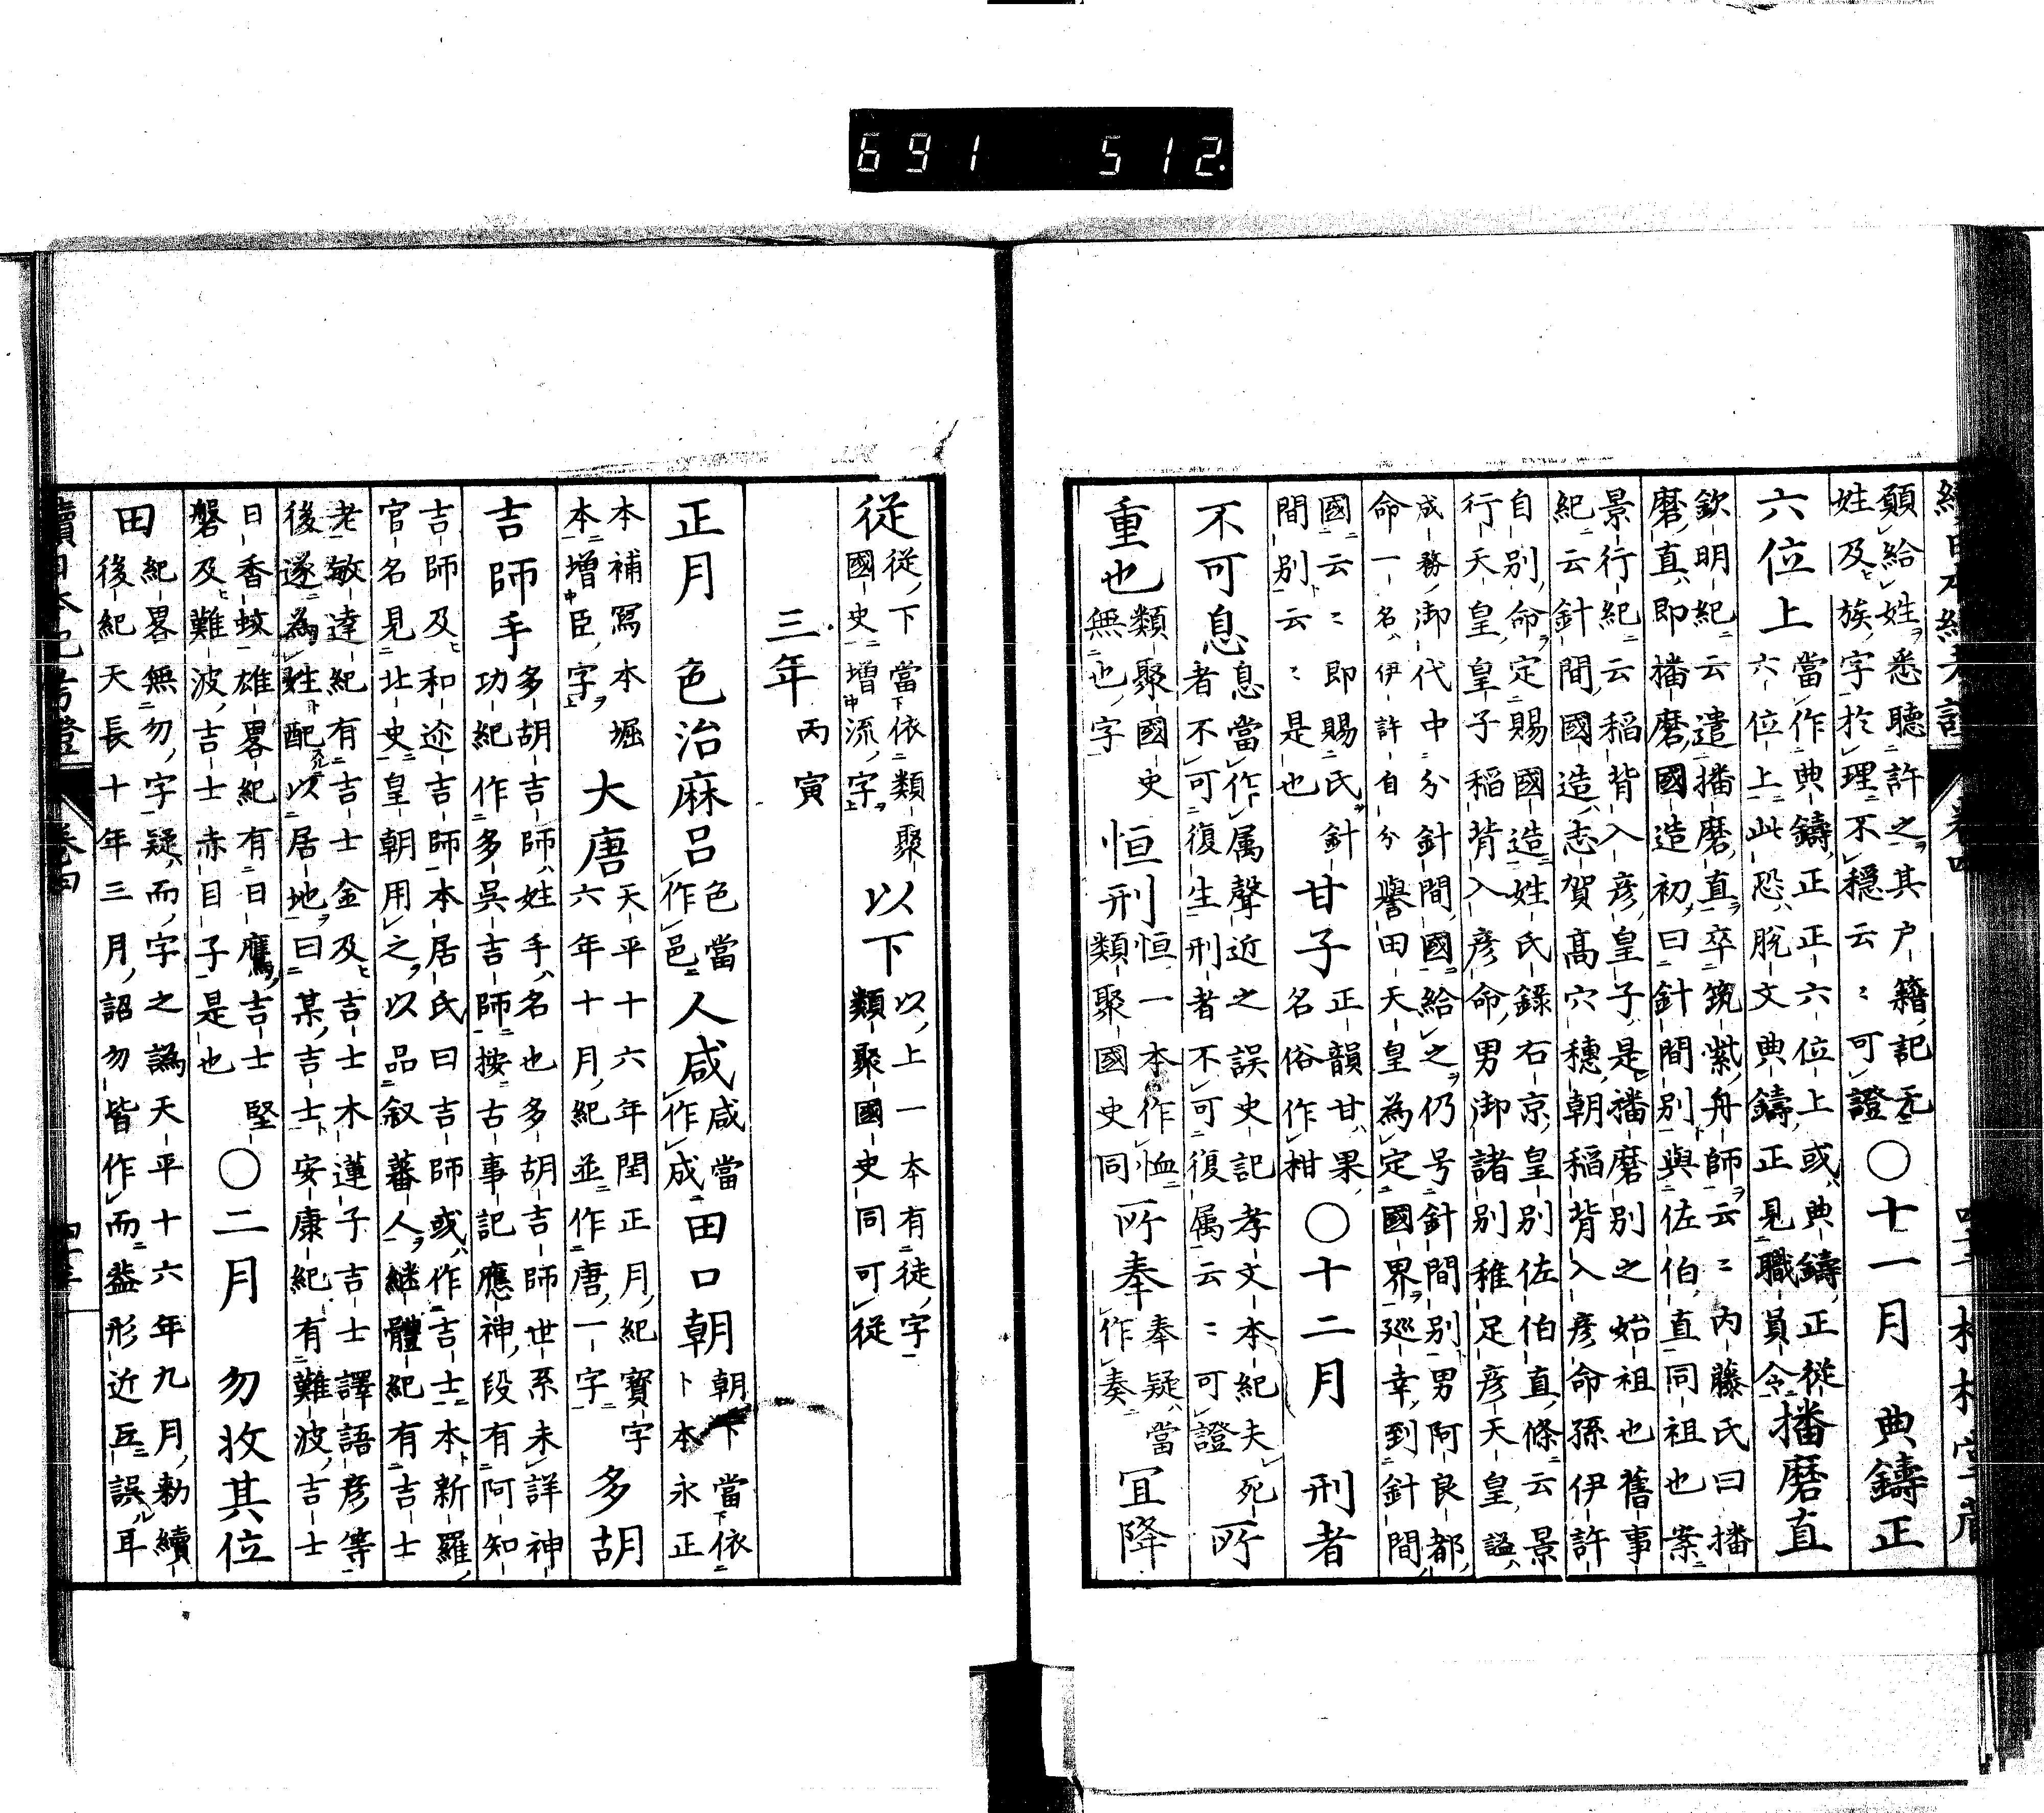 691 512.
願給姓悉聽許之其户籍記无
姓及族字於理不穩云〻可證〇十一月 典鑄正
六位上當作典鑄正正六位上或典鑄正從
六位上此恐脫文典鑄正見職員令播磨直
欽明紀云遣播磨直卒筑紫舟師云〻內藤氏曰播
磨直即播磨國造初曰針間別與佐伯直同祖也案
景行紀云稻背入彥皇子是播磨別之始祖也舊事
紀云針間國造志賀高穴穗朝稻背入彥命孫伊許
自別命定賜國造姓氏錄右京皇別佐伯直條云景
行天皇皇子稻背入彥命男御諸別稚足彥天皇謚
成務御代中分針間國給之仍号針間別男阿良都
命一名伊許自分譽田天皇為定國界巡幸到針間
國云〻即賜氏針
間別云〻是也甘子正韻甘果
名俗作柑〇十二月 刑者
不可息息當作属聲近之誤史記孝文本紀夫死
者不可復生刑者不可復属云〻可證所
重也類聚國史
無也字恒刑恒一本作恤
類聚國史同所奉奉疑當
作奏宜降
從從下當依類聚
國史增流字以下以上一本有徒字
類聚國史同可從
三年丙寅
正月 色治麻呂色當
作邑人咸咸當
作成田口朝朝下當依
卜本永正
本補寫本堀
本增臣字大唐天平十六年閏正月紀寶字
六年十月紀並作唐一字多胡
吉師手多胡吉師姓手名也多胡吉師世系未詳神
功紀作多吳吉師按古事記應神段有阿知
吉師及和迩吉師本居氏曰吉師或作吉士本新羅
官名見北史皇朝用之以品叙蕃人継體紀有吉士
老敏達紀有吉士金及吉士木蓮子吉士譯語彥等
後遂為姓配以居地曰某吉士安康紀有難波吉士
日香蚊雄畧紀有日鷹吉士堅
磐及難波吉士赤目子是也〇二月 勿收其位
田紀畧無勿字疑而字之譌天平十六年九月勅續
後紀天長十年三月詔勿皆作而葢形近互誤耳